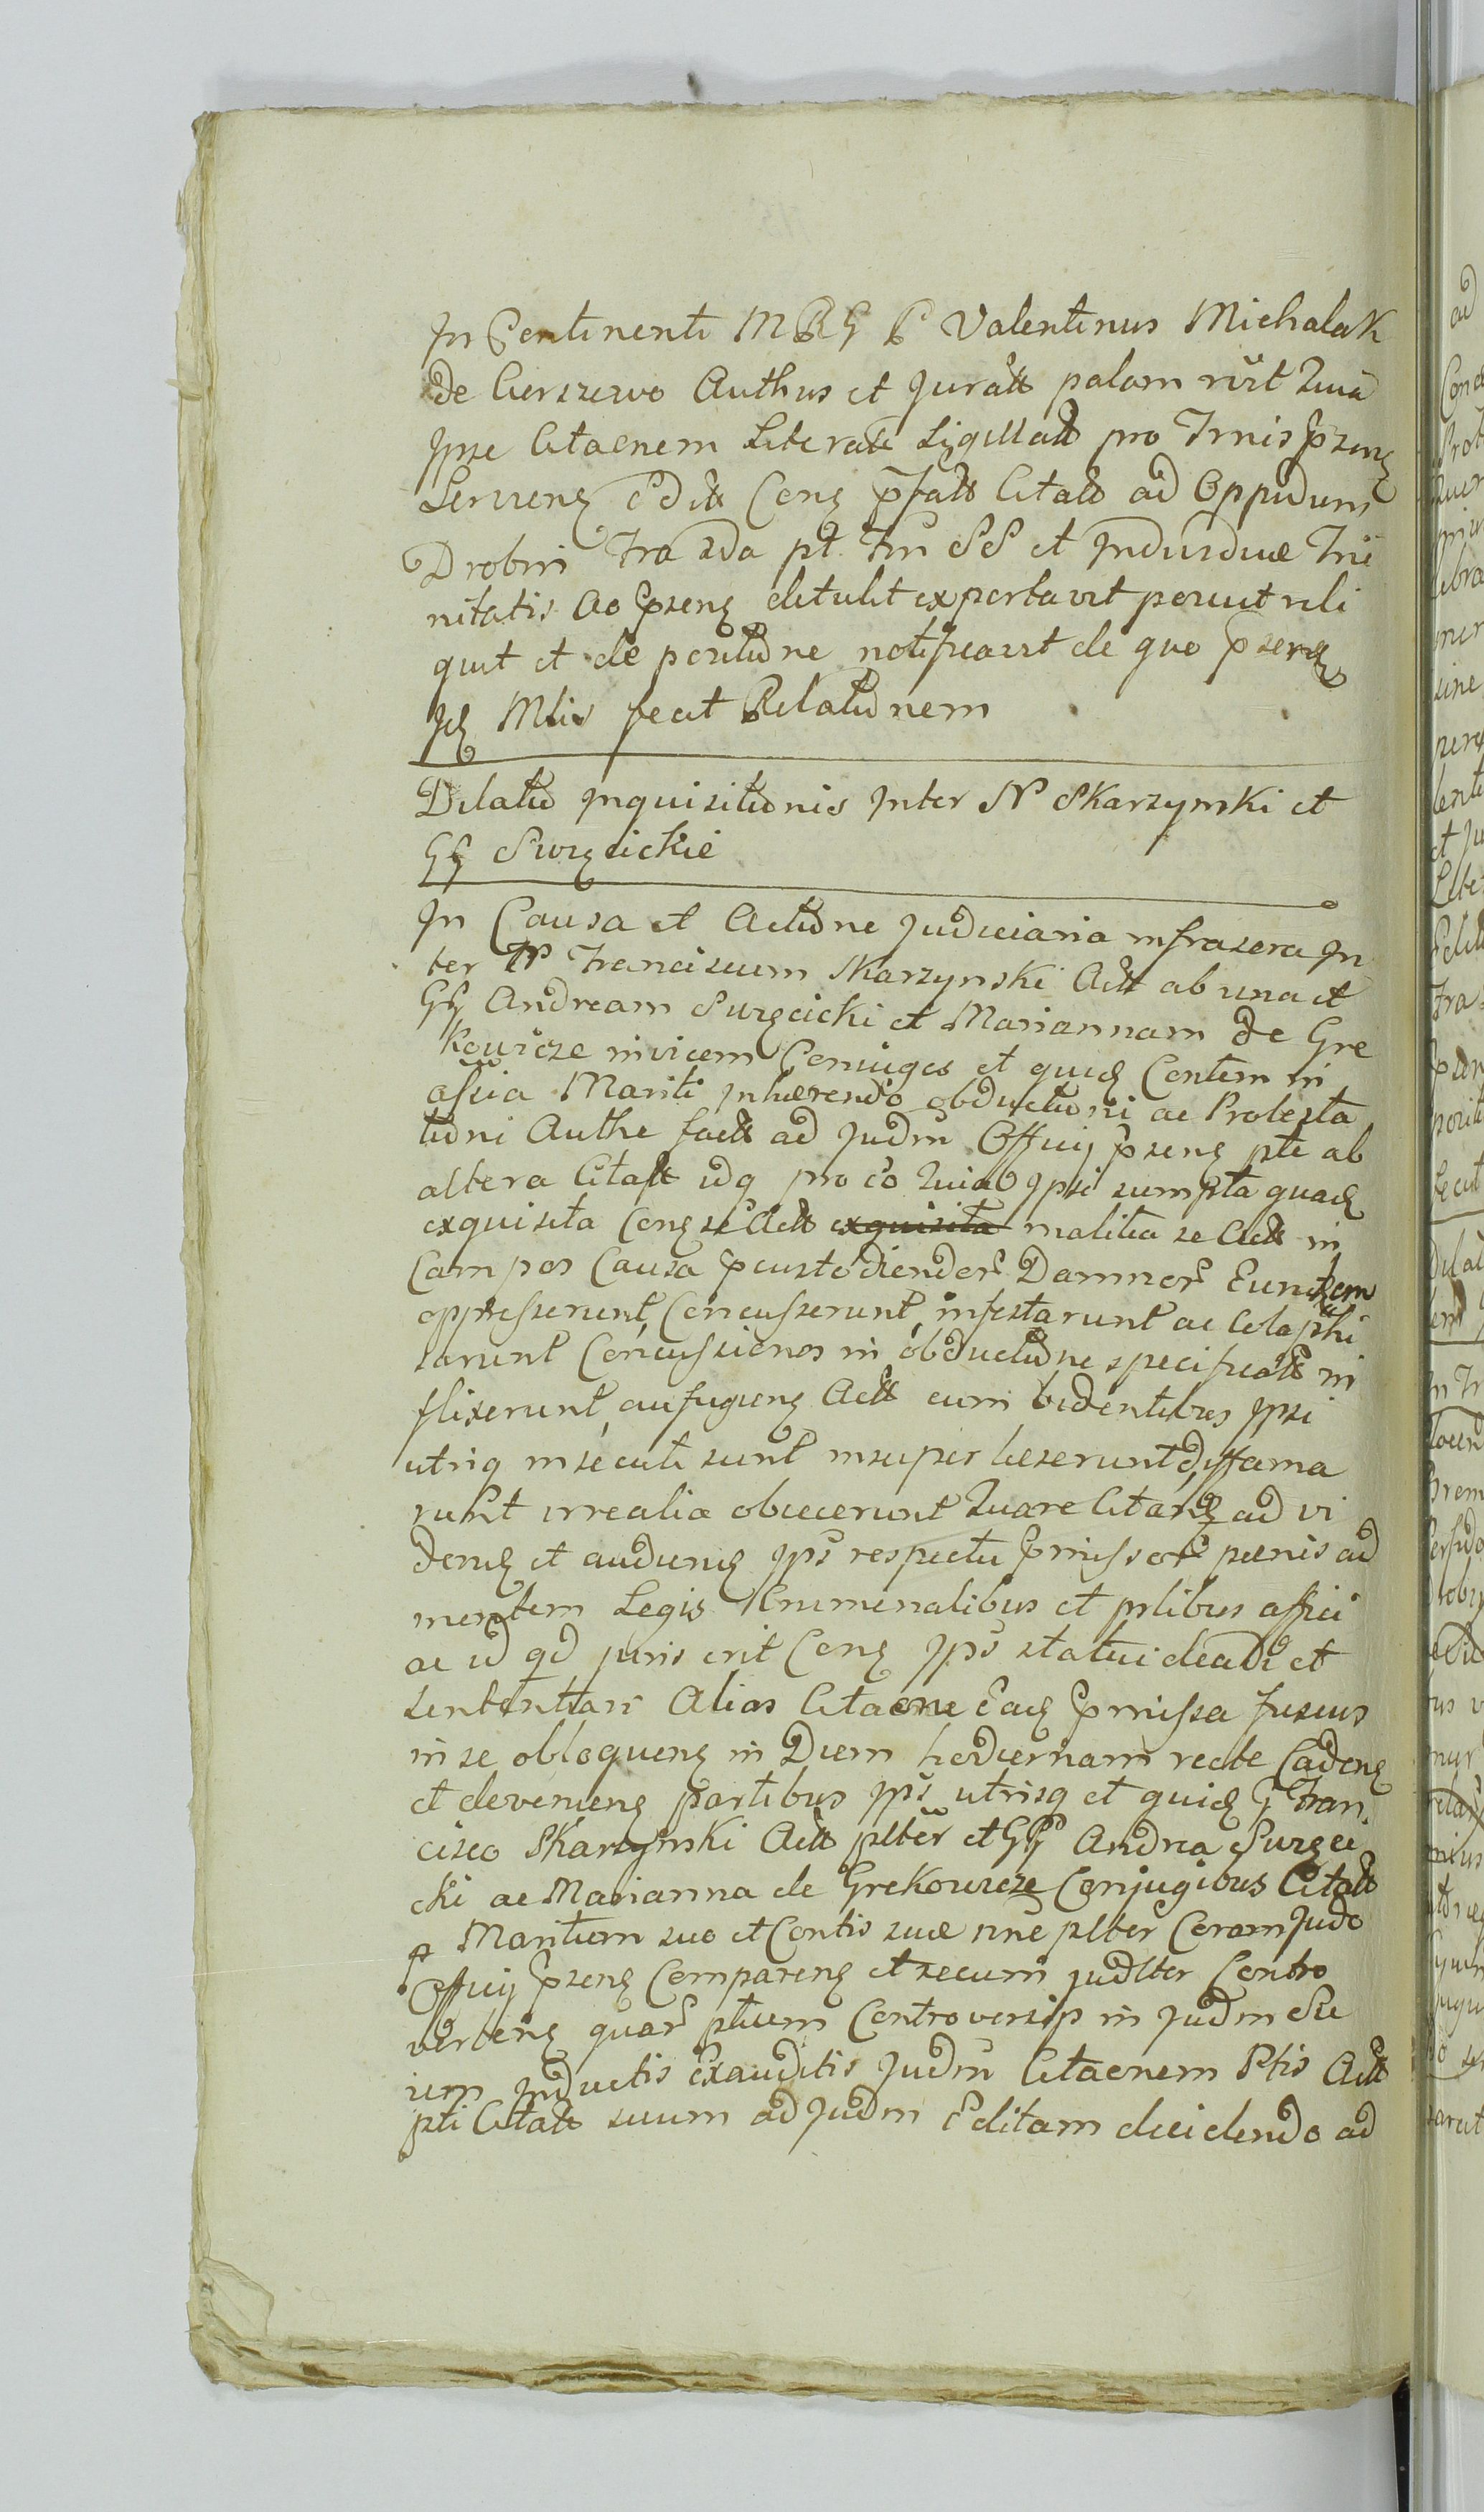 In Continenti MRG P Valentinus Michalak
de Cierszewo Authus et Juratt palam rūt Quia
Ipse Citacnem Literatt Sigillatt pro Trnis pseng
Serueng Editt Coug pfatt Citatt ad Oppidum
Drobin Fra 2da pt. Fm SS et Individuæ Tri
nitatis Ao pseng detulit exportavit posuit reli
quit et de positione notificavit de quo pseng
Jd Mlis fecit Relationem
Dilatio Inquisitionis Inter N Skarzynski et
GG Surgcickie
In Causa et Actione Judiciaria infrascra In
ter N Franciscum Skarzynski Act ab una et
GG Andream Surgcicki et Mariannam de Gre
kowicze invicem Coniuges et quid Contem in
assia Mariti Inhærendo obductioni ac Protesta
tioni Authe fact ad Judm Officij pseng pte ab
altera Citatt idq pro eo Quia Ipsi sumpta quad
exquisita Cong se Act exquisita malitia se Act in
Campos Causa pcustodiendor Damnor Eundem
oppresserunt, Concusserunt, infestarunt ac Colaphi
sarunt Concussiones in obductione specificatt in
flixerunt, aufugieng Act eum bidentibus Ipsi
utriq insecuti sunt insuper leserunt diffama
runt irrealia obiecerunt Quare Citand ad vi
dend et audiend Ips respectu pmissor pœnis ad
mentem Legis Criminalibus et prlibus affici
ac id qd juris erit Cong Ips statui decidi et
sententiari Alias Citacne Ead pmissa fusius
in se obloqueng in Diem hodiernam recte Cadeng
et devenieng partibus Ips utrisq et quid G Fran
cisco Skarzynski Act plter et GG Andrea Surgci
cki ac Marianna de Grekowicze Conjugibus Citatt
p Maritum suo et Contis suæ nne plter Coram Judo
Officij pseng Compareng et secum judlter Contro
verteng quar ptium Controversijs in Judm Su
um Inductis Exauditis Judm Citacnem Ptis Act
pti Citatt suum ad Judm Editam decidendo ad